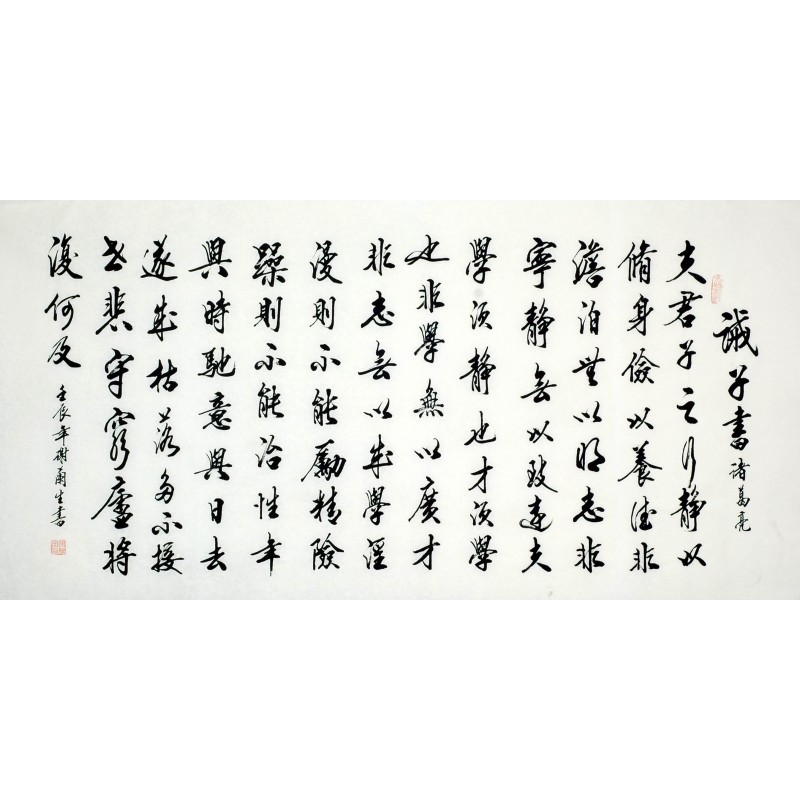 誡子書 諸葛亮
夫君子之行靜以
脩身儉以養德非
澹泊無以明志非
寧靜無以致遠夫
學須靜也才須學
也非學無以廣才
非志無以成學淫
漫則不能勵精險
躁則不能冶性年
與時馳意與日去
遂成枯落多不接
世悲守窮廬將
復何及
壬辰年謝爾生書